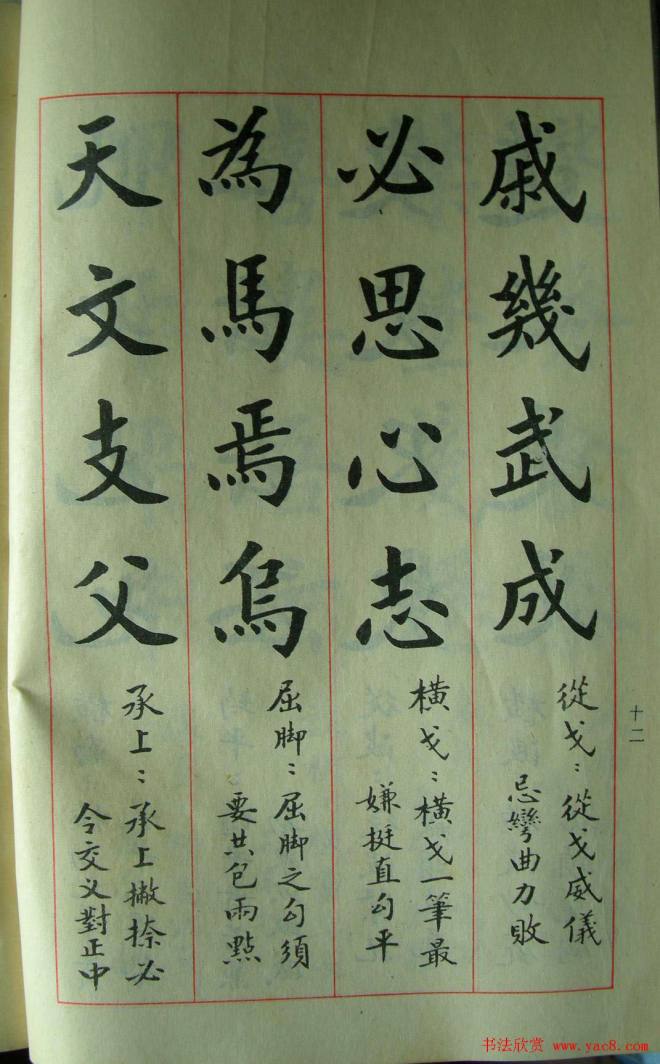 十二
戚幾武成
從戈：從戈威儀
忌彎曲力敗
必思心志
橫戈：橫戈一筆最
嫌挺直勾平
為馬焉烏
屈脚：屈脚之勾須
要共包兩點
天文支父
承上：承上撇捺必
令交义對正中
书法欣赏 www.yac8.com